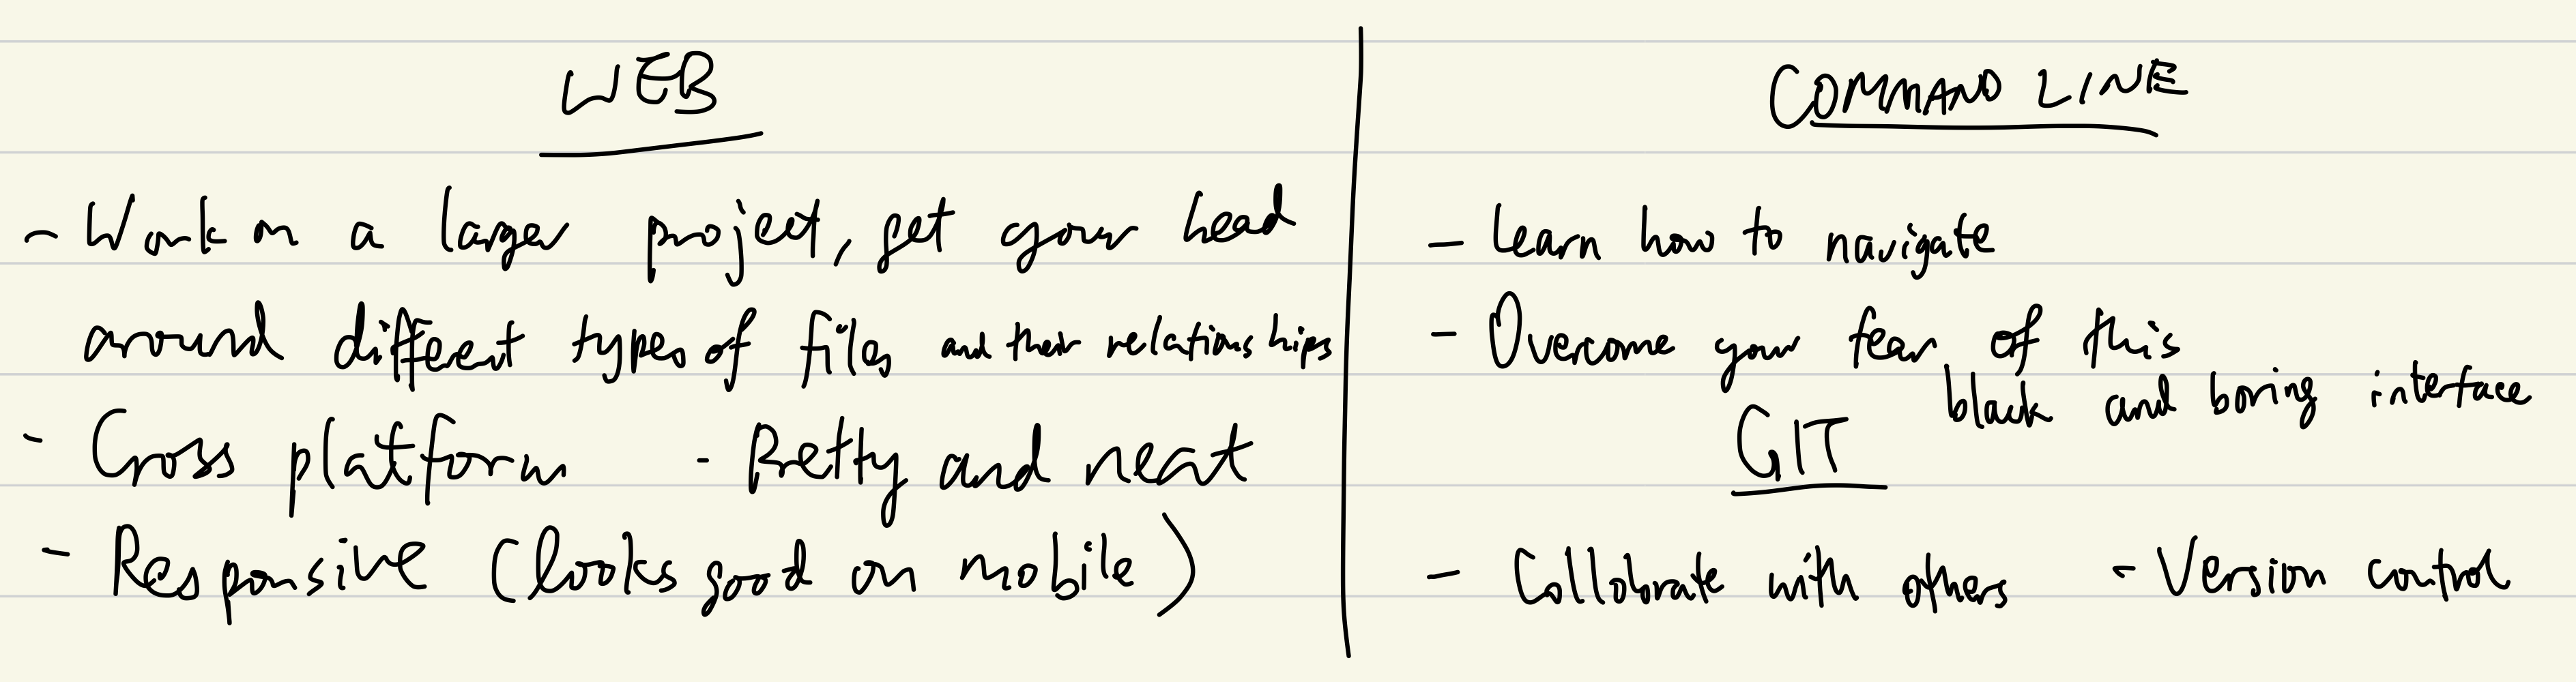 WEB
- Work on a larger project, get your head
around different types of files and their relationships
- Cross platform - Pretty and neat
- Responsive (looks good on mobile)
COMMAND LINE
- Learn how to navigate
- Overcome your fear of this
black and boring interface
GIT
- Collobrate with others - Version control